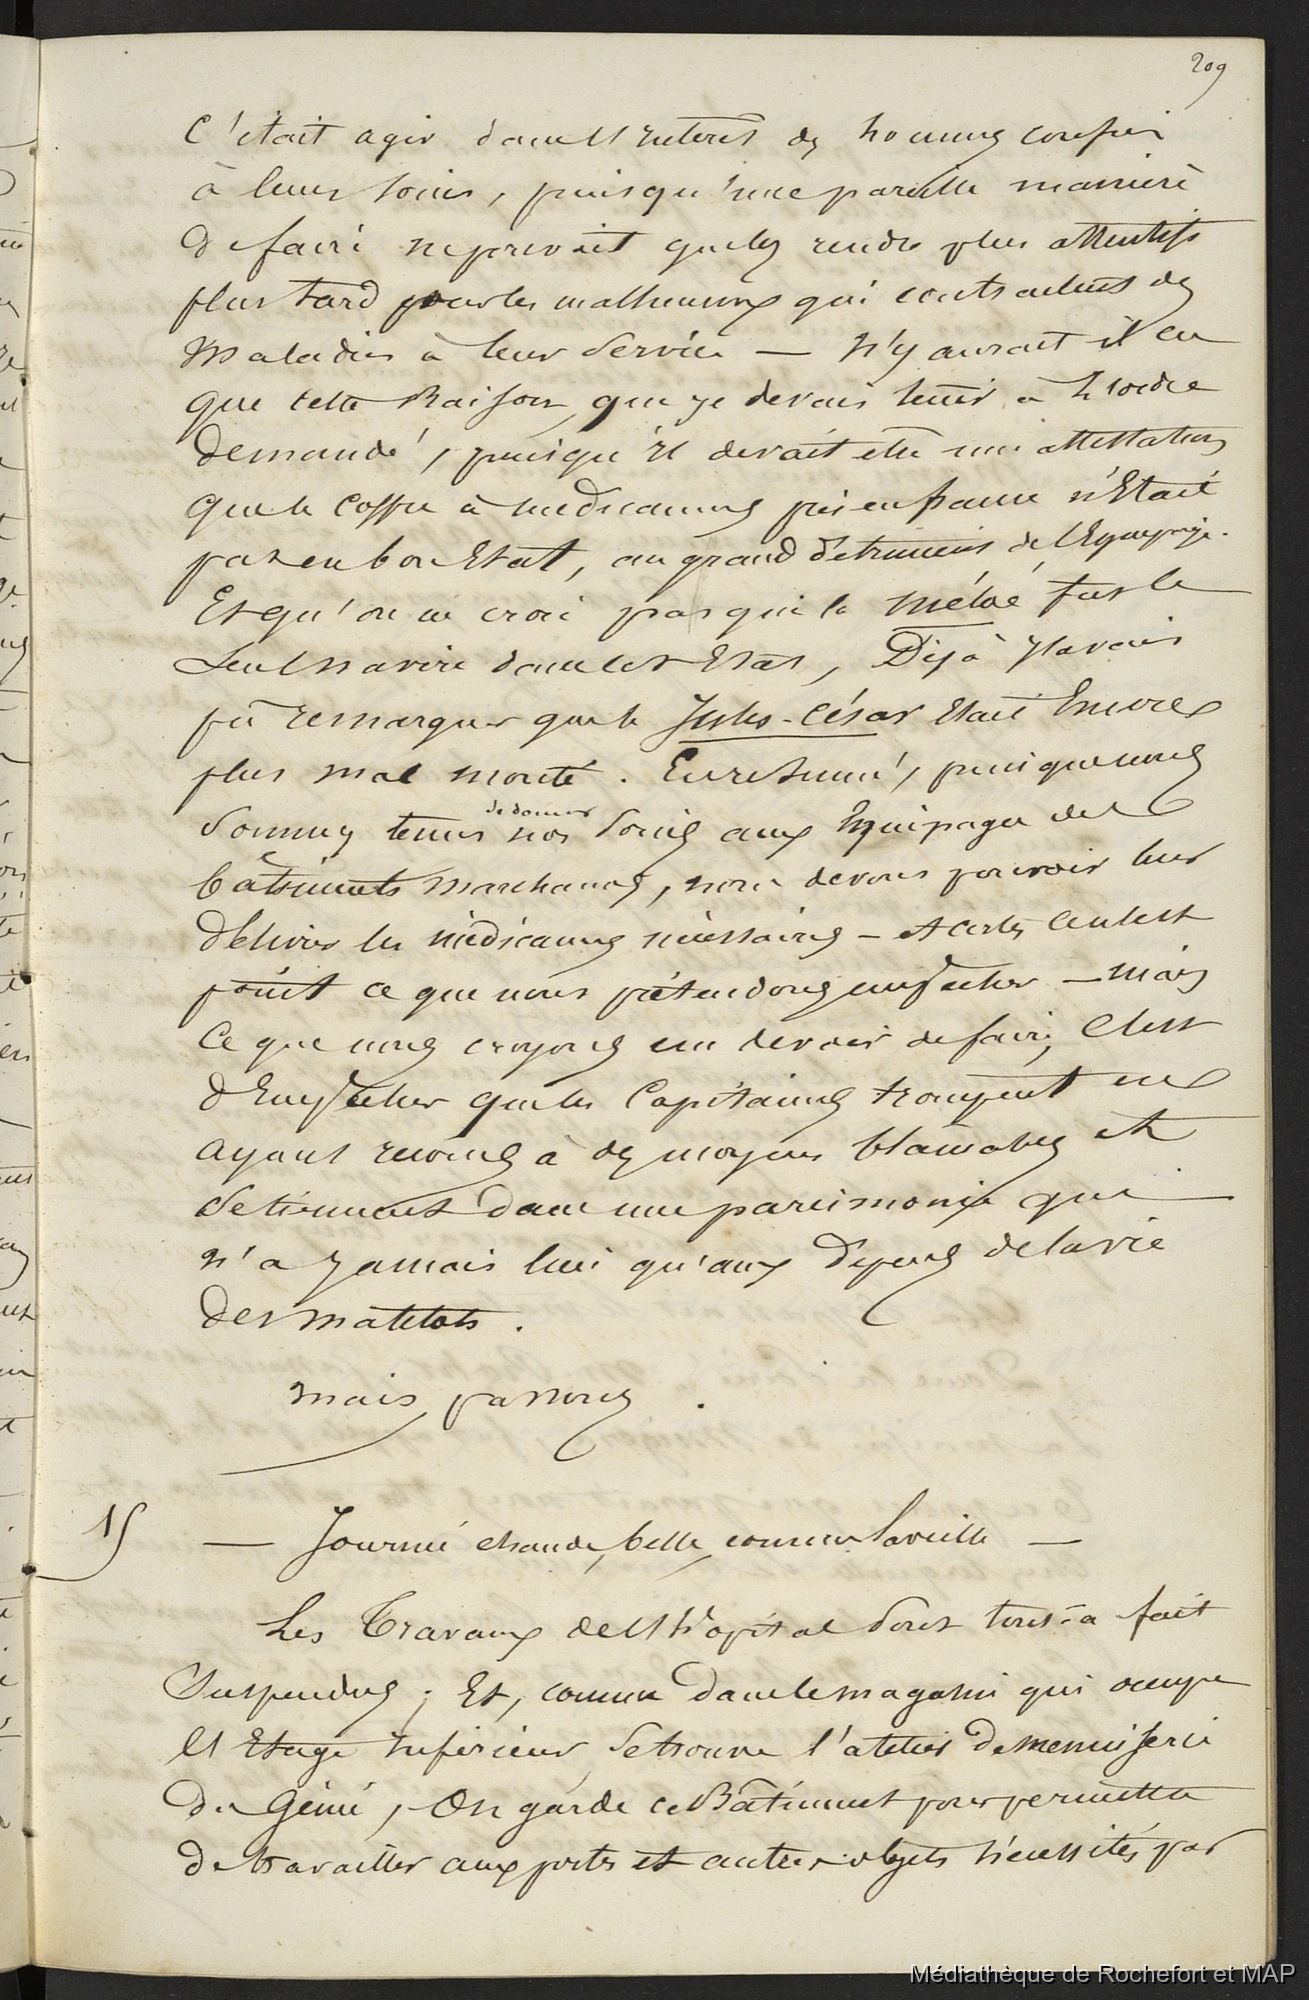 209
C'était agir dans l'Intérêt des hommes confiés
à leurs soins, puisqu'une pareille manière
de faire ne pouvait que les rendre plus attentifs
plus tard pour les malheureux qui contractent des
Maladies à leur Service — N'y aurait il eu
que cette Raison, que je devais tenir à l'ordre
Demandé, puisqu'Il devait être une attestation
que le Coffre à médicaments pris en france n'Etait
pas en bon Etat, au grand détriment de l'Equipage.
Et qu'on ne croie pas que le fut le
Seul Navire dans cet Etat, Déjà J'avais
pû remarquer que le Jules-César Etait Encore
plus mal monté. En résumé, puisque nous
Sommes tenus de donner nos soins aux Equipages des
bâtiments Marchands, nous devons pouvoir leur
délivrer les médicaments nécessaires — et certes ce n'est
point ce que nous prétendons empêcher — Mais
Ce que nous croyons un devoir de faire, C'est
d'Empêcher que les Capitaines trompent en
ayant recours à des moyens blamables et
Se tiennent dans une parcimonie qui
n'a Jamais lieu qu'aux Dépens de la vie
Des Matelots.
Mais passons.
15
— Journée chaude, belle, comme la veille —
Les Travaux de l'Hôpital Sont tout-à fait
Suspendus ; Et, comme dans le magasin qui occupe
l'Etage Inférieur, Se trouve l'atelier De Menuiserie
Du Génie, On garde ce Bâtiment pour permettre
De travailler aux portes et autres objets Nécessités par
Médiathèque de Rochefort et MAP